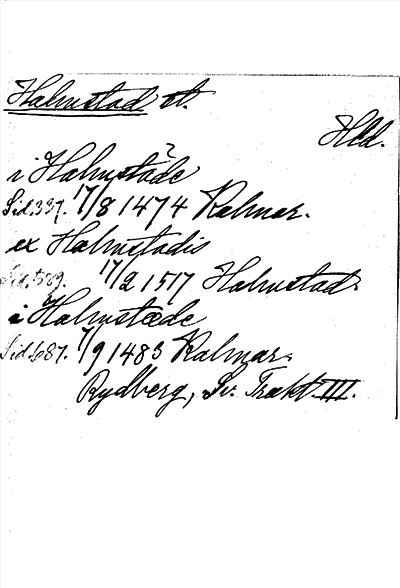 Halmstad st.
Hld.
i Halmstade ?
Sid. 337. 17/8 1474 Kalmar.
ex Halmstadis
Sid. 589. 17/2 1517 Halmstad.
i Halmstæde
Sid. 687. 7/9 1483 Kalmar.
Rydberg, Sv. Trakt. III.